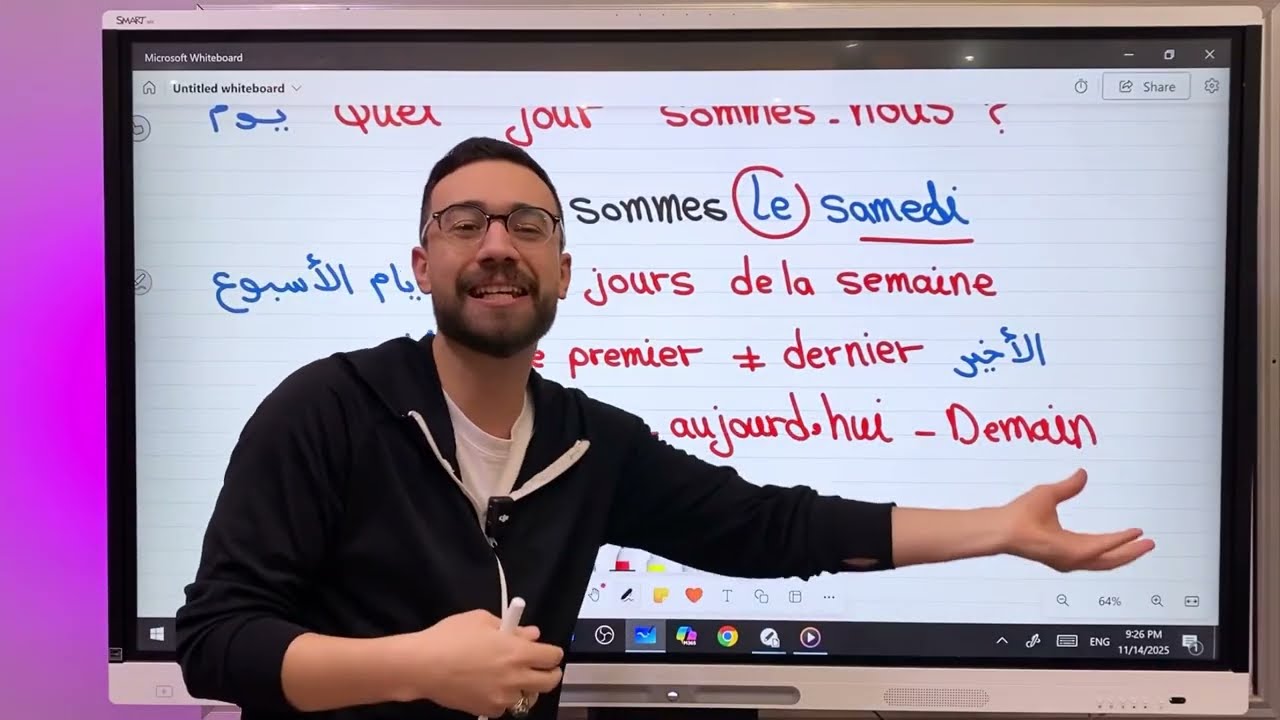 SMART
Microsoft Whiteboard
Untitled whiteboard
Share
يوم Quel jour sommes-nous ?
sommes le samedi
يام الأسبوع jours de la semaine
e premier ≠ dernier الأخير
- aujourd'hui - Demain
64%
ENG
9:26 PM
11/14/2025